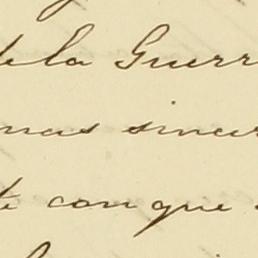 de la Guerr
mas sincer
te con que